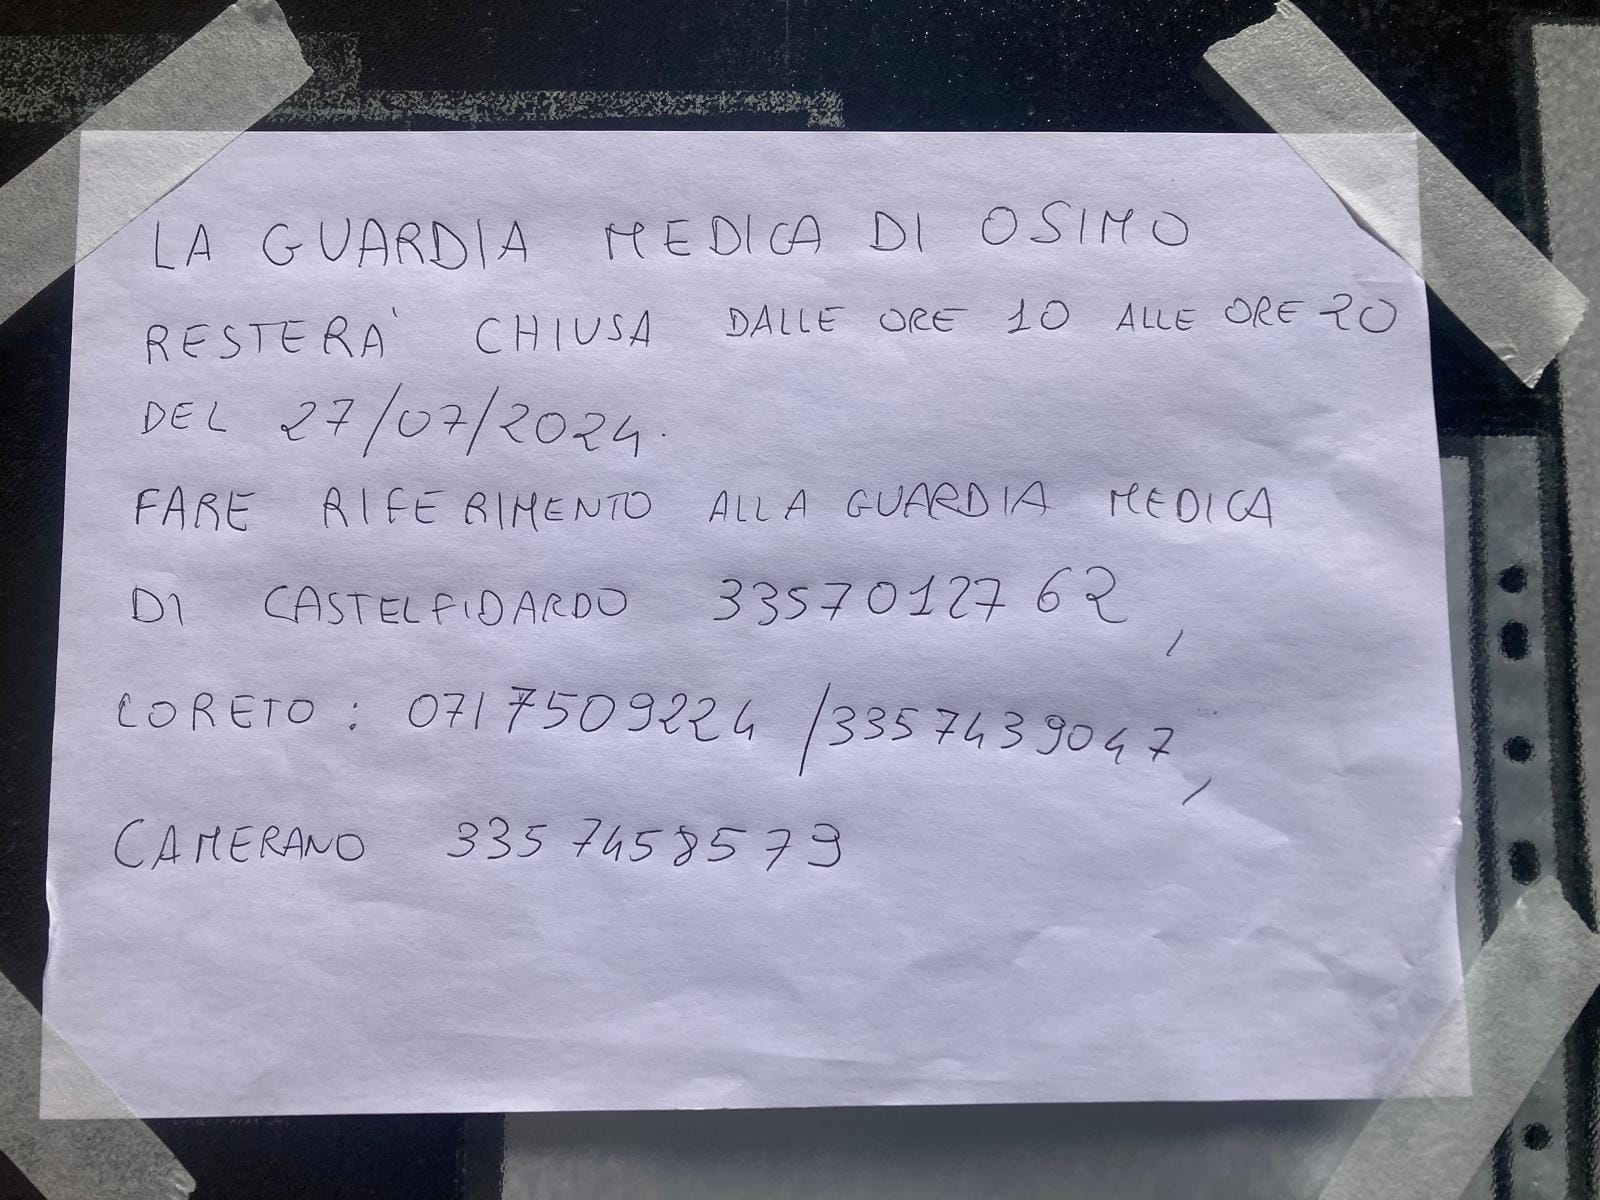 LA GUARDIA MEDICA DI OSIMO
RESTERA' CHIUSA DALLE ORE 10 ALLE ORE 20
DEL 27/07/2024.
FARE RIFERIMENTO ALLA GUARDIA MEDICA
DI CASTELFIDARDO 3357012762,
LORETO: 0717509224 /3357439047,
CAMERANO 3357458579